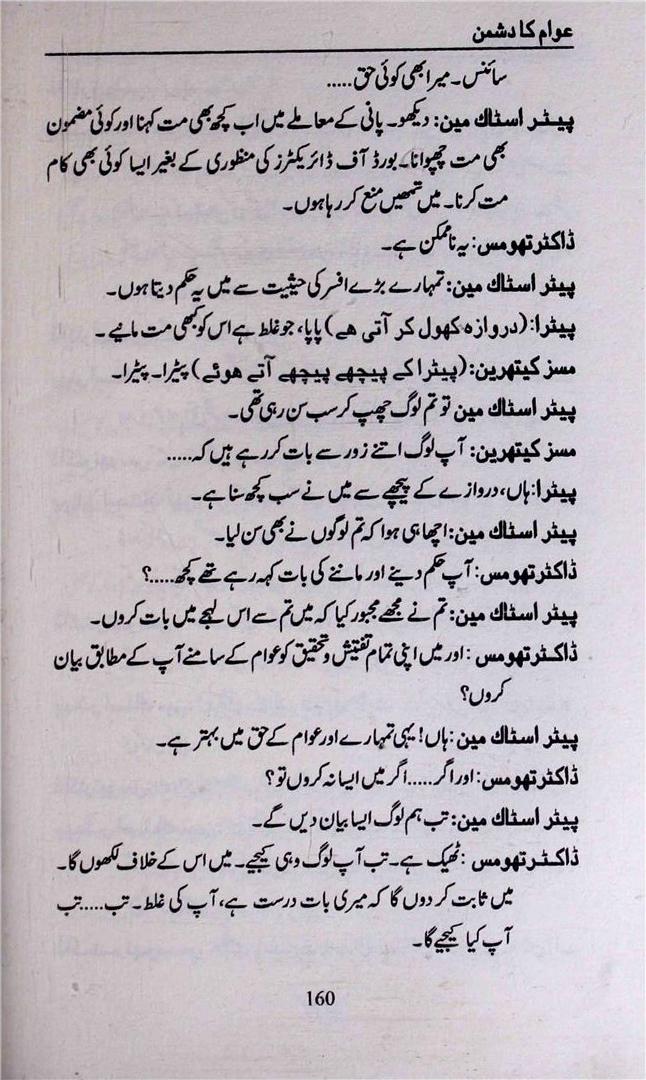 عوام کا دشمن
سائنس۔ میرا بھی کوئی حق.....
پیٹر اسٹاک مین: دیکھو۔ پانی کے معاملے میں اب کچھ بھی مت کہنا اور کوئی مضمون
بھی مت چھپوانا۔ بورڈ آف ڈائریکٹرز کی منظوری کے بغیر ایسا کوئی بھی کام
مت کرنا۔ میں تمھیں منع کر رہا ہوں۔
ڈاکٹر تھومس: یہ ناممکن ہے۔
پیٹر اسٹاک مین: تمہارے بڑے افسر کی حیثیت سے میں یہ حکم دیتا ہوں۔
پیٹرا: (دروازہ کھول کر آتی ھے) پاپا، جو غلط ہے اس کو کبھی مت مانیے۔
مسز کیتھرین: (پیٹرا کے پیچھے پیچھے آتے ھوئے) پیٹرا۔ پیٹرا۔
پیٹر اسٹاک مین تو تم لوگ چھپ کر سب سن رہی تھی۔
مسز کیتھرین: آپ لوگ اتنے زور سے بات کر رہے ہیں کہ.....
پیٹرا: ہاں، دروازے کے پیچھے سے میں نے سب کچھ سنا ہے۔
پیٹر اسٹاک مین: اچھا ہی ہوا کہ تم لوگوں نے بھی سن لیا۔
ڈاکٹر تھومس: آپ حکم دینے اور ماننے کی بات کہہ رہے تھے کچھ.....؟
پیٹر اسٹاک مین: تم نے مجھے مجبور کیا کہ میں تم سے اس لہجے میں بات کروں۔
ڈاکٹر تھومس: اور میں اپنی تمام تفتیش و تحقیق کو عوام کے سامنے آپ کے مطابق بیان
کروں؟
پیٹر اسٹاک مین: ہاں! یہی تمہارے اور عوام کے حق میں بہتر ہے۔
ڈاکٹر تھومس: اور اگر..... اگر میں ایسا نہ کروں تو؟
پیٹر اسٹاک مین: تب ہم لوگ ایسا بیان دیں گے۔
ڈاکٹر تھومس: ٹھیک ہے۔ تب آپ لوگ وہی کیجیے۔ میں اس کے خلاف لکھوں گا۔
میں ثابت کر دوں گا کہ میری بات درست ہے، آپ کی غلط۔ تب.....تب
آپ کیا کیجیے گا۔
160